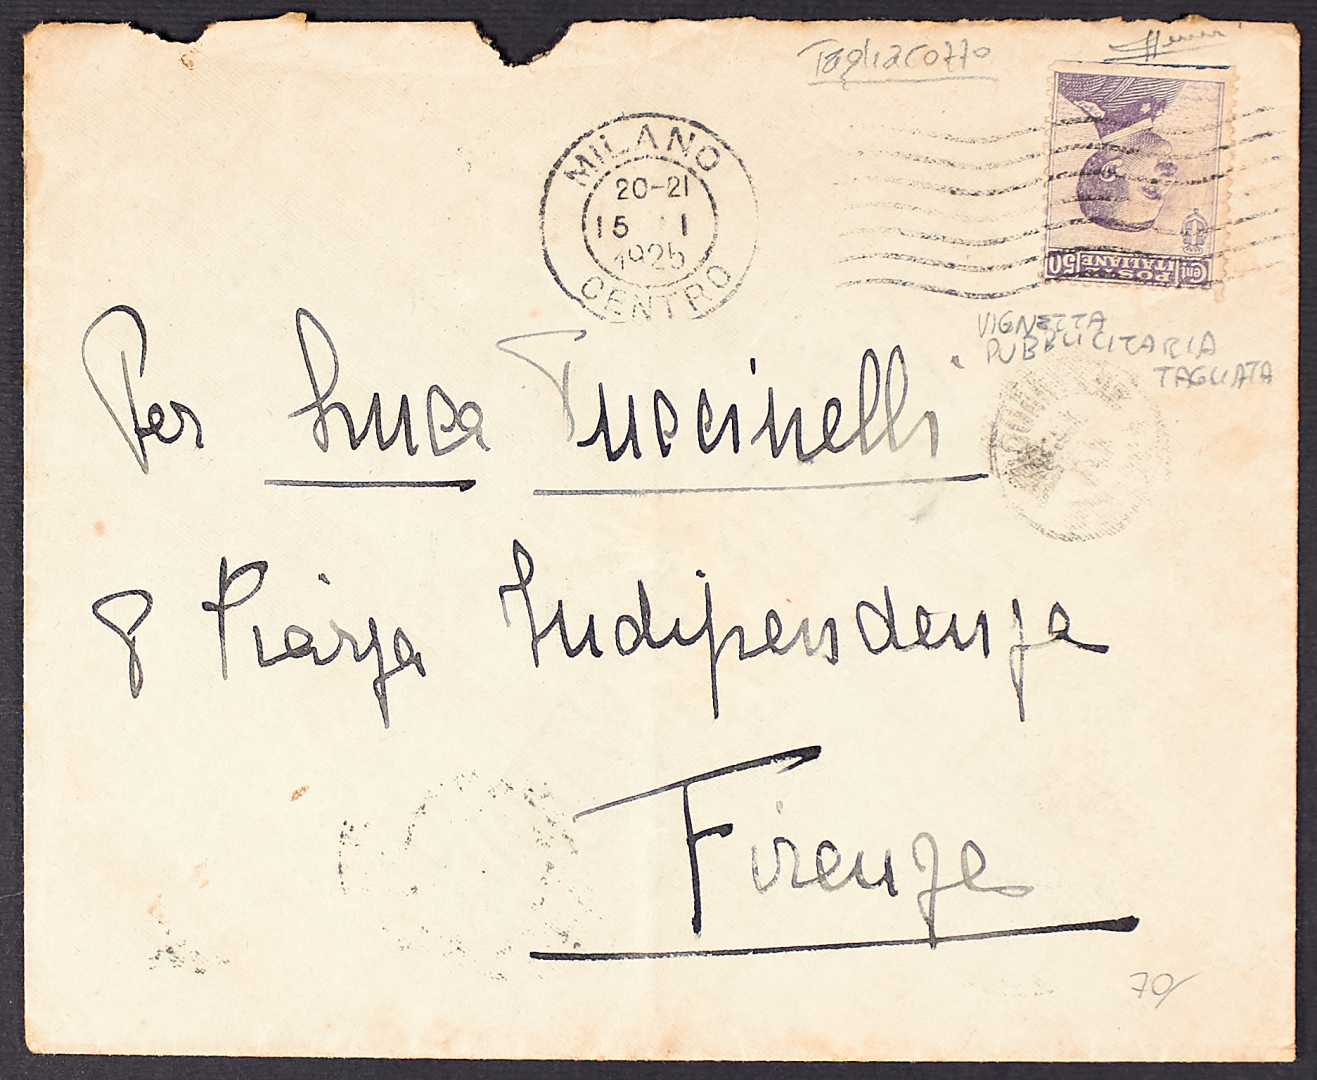 Tagliacozzo
MILANO
20-21
15 1
1925
CENTRO
Cent POSTE 50
ITALIANE
VIGNETTA
PUBBLICITARIA
TAGLIATA
Per Luca Puccinelli
8 Piazza Indipendenza
Firenze
70/